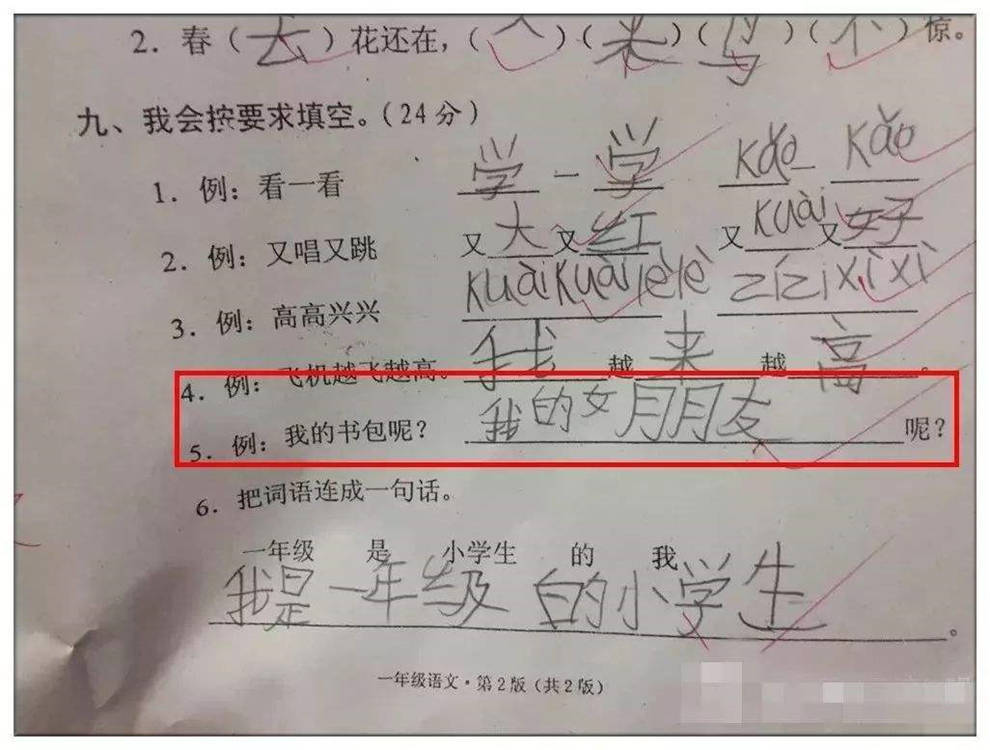 2. 春（去）花还在，（人）（来）（鸟）（不）惊。
九、我会按要求填空。（24分）
1. 例：看一看 学一学 kǎo kǎo
2. 例：又唱又跳 又大又红 又kuài又好
3. 例：高高兴兴 kuàikuàilèlè zǐzǐxìxì
4. 例：飞机越飞越高。 我越来越高。
5. 例：我的书包呢？ 我的女朋朋友呢？
6. 把词语连成一句话。
一年级 是 小学生 的 我
我是一年级的小学生。
一年级语文·第2版（共2版）